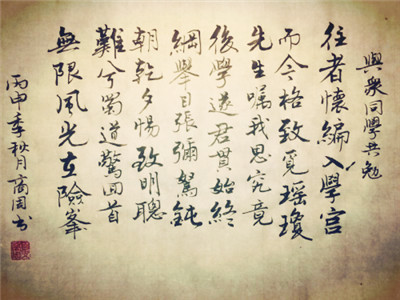 與衆同學共勉
往者懷編入學宫
而今格致覓瑶瓊
先生囑我思究竟
後學送君貫始終
綱舉目張彌駑鈍
朝乾夕惕致明聰
難兮蜀道驚回首
無限風光在險峯
丙申季秋月商周书